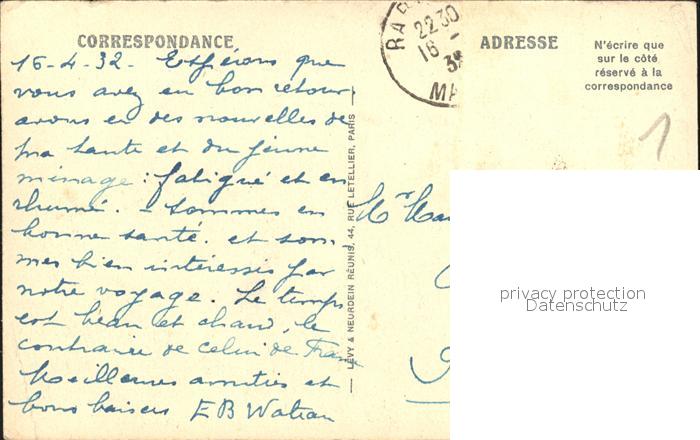 CORRESPONDANCE
16-4-32- Espérons que
vous avez eu bon retour,
avons eu des nouvelles de
ma tante et du jeune
ménage : fatigué et en
rhumé. - Sommes en
bonne santé. et som-
mes bien intéressés par
notre voyage. Le temps
est beau et chaud, le
contraire de celui de France
Meilleures amitiés et
bons baisers E B
LEVY & NEURDEIN RÉUNIS, 44, RUE LETELLIER, PARIS
RA
22 30
16 -
ADRESSE
N'écrire que
sur le côté
réservé à la
correspondance
1
Mr
privacy protection
Datenschutz